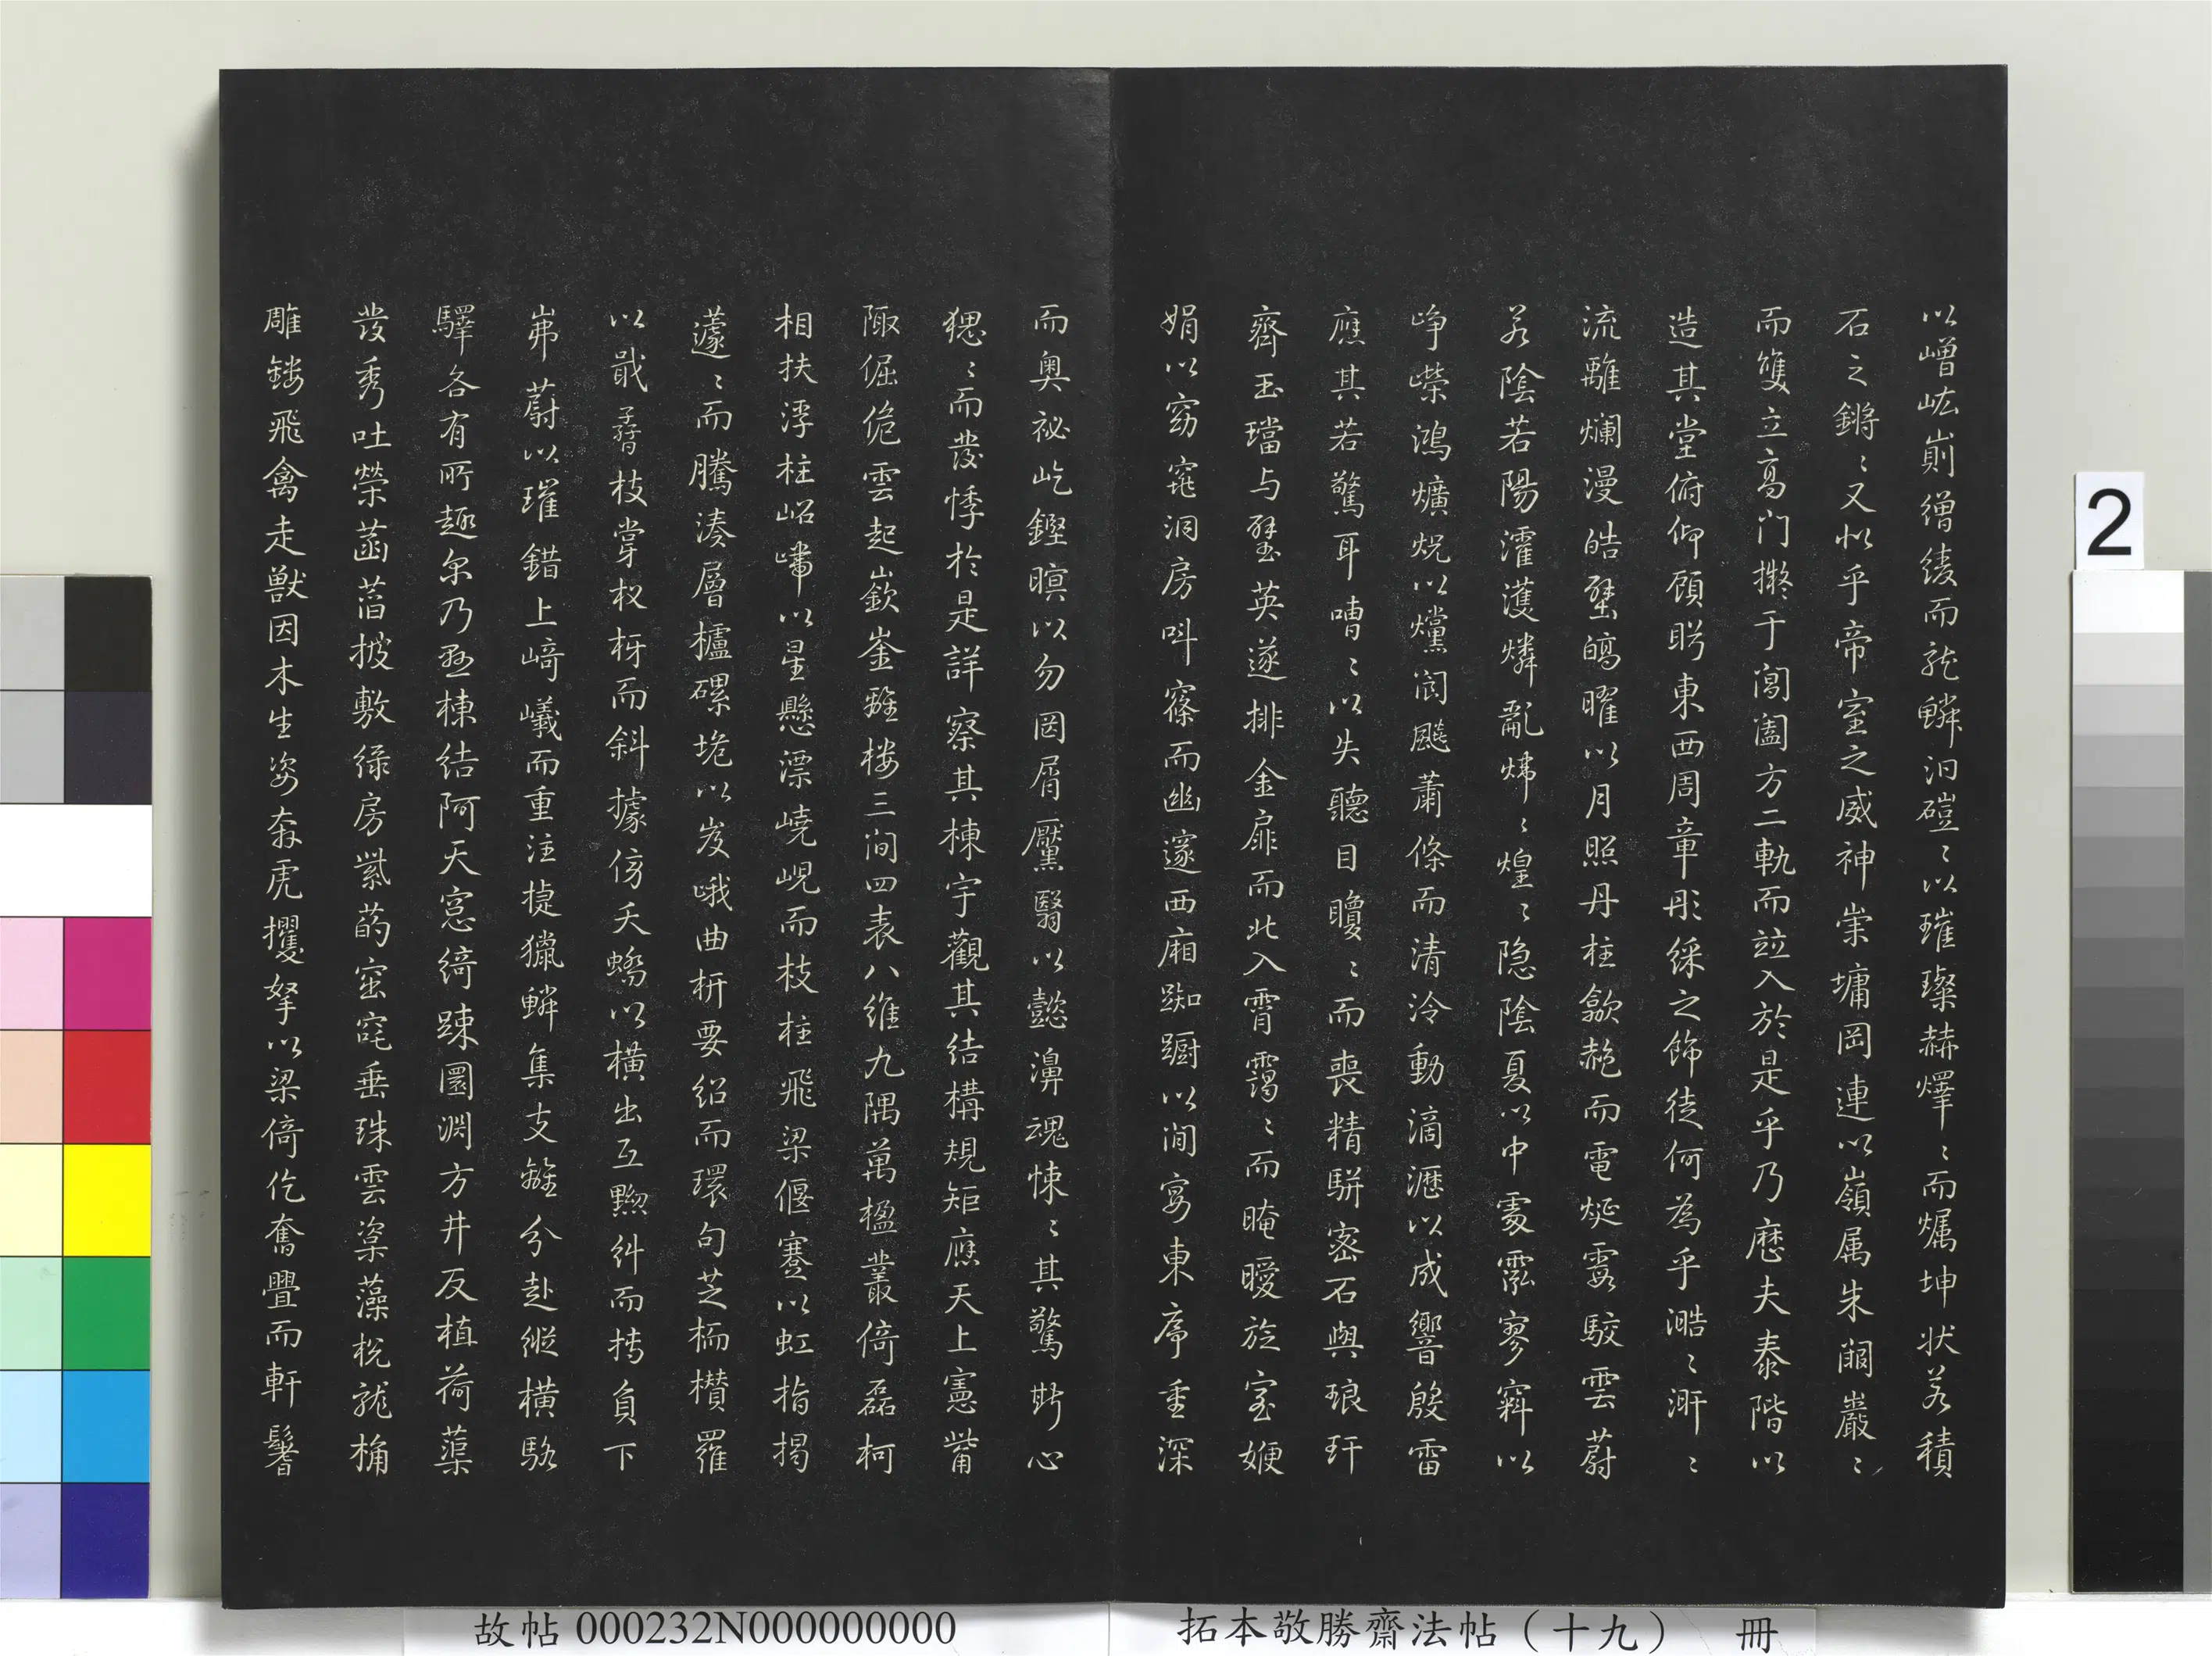 以嶒峵崱繒綾而龍鱗汩磑〻以璀璨赫燡〻而爥坤狀若積
石之鏘〻又似乎帝室之威神崇墉岡連以嶺属朱闕巖〻
而雙立高门擬于閶闔方二軌而竝入於是乎乃歷夫泰階以
造其堂俯仰顾眄東西周章彤綵之飾徒何為乎澔〻涆〻
流離爛漫皓壁皜曜以月照丹柱歙赩而電烻霞駮雲蔚
若陰若陽瀖濩燐亂煒〻煌〻隐陰夏以中處霐寥窲以
峥嶸鴻爌炾以爣阆飋蕭條而清泠動滴瀝以成響殷雷
應其若驚耳嘈〻以失聽目瞍〻而喪精駢密石與琅玕
齊玉璫与璧英遂排金扉而北入霄靄〻而晻曖旋室㛹
娟以窈窕洞房叫窱而幽邃西廂踟蹰以闲宴東序重深
而奥祕屹鏗瞑以勿罔屑黶翳以懿濞魂悚〻其驚斯心
𤟧〻而發悸於是詳察其棟宇觀其結構規矩應天上憲觜
陬倔佹雲起嶔崟離樓三间四表八維九隅萬楹叢倚磊柯
相扶浮柱岹嵽以星懸漂嶢峴而枝柱飛梁偃蹇以虹指揭
蘧〻而騰湊層櫨磥垝以岌峨曲枅要绍而環句芝栭欑羅
以戢孴枝牚杈枒而斜據傍夭蟜以橫出互黝糾而搏負下
岪蔚以璀錯上崎嶬而重注捷獵鱗集支離分赴縱橫駱
驛各有所趣尔乃悬棟結阿天窓綺疎圜渊方井反植荷蕖
發秀吐榮菡萏披敷绿房紫菂窋窀垂珠雲楶藻梲龍桷
雕鏤飛禽走獸因木生姿奔虎攫挐以梁倚仡奮亹而軒鬐
2
故帖000232N000000000
拓本敬勝齋法帖（十九） 冊